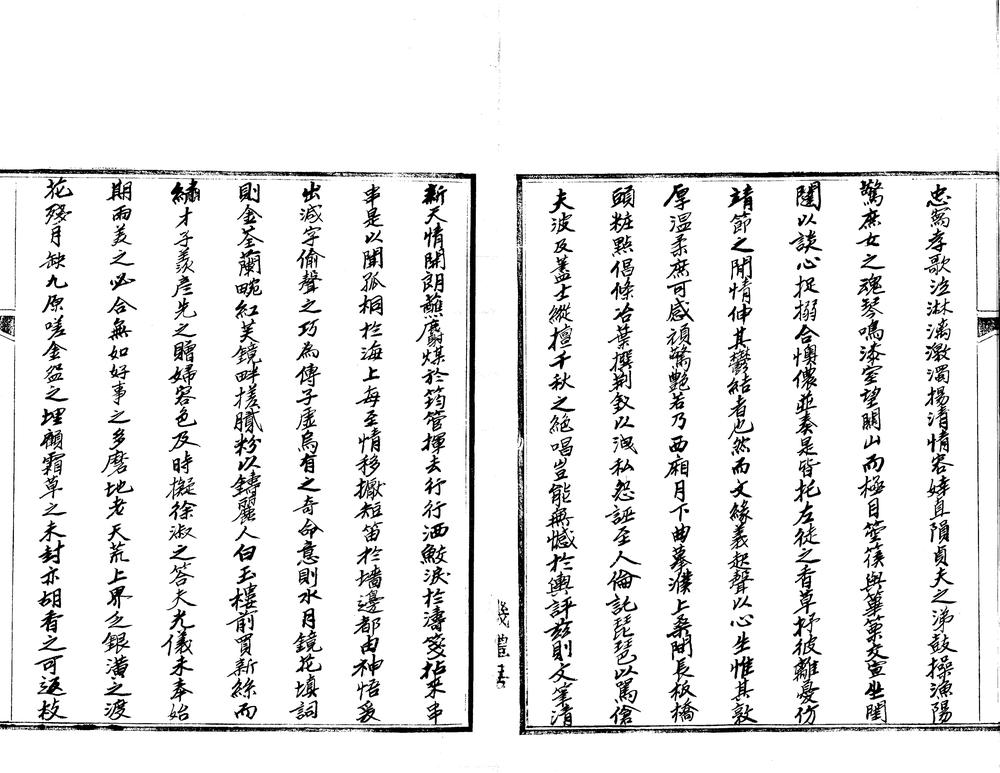 忠寫孝歌泣淋漓激濁揚清情客婞直隕貞夫之涕鼓操漁陽
驚庶女之魂琴鳴漆室望關山而極目箜篌與篳篥交宣坐閨
闥以談心捉搦合懊儂並奏是皆托左徒之香草抒彼離憂仿
靖節之閒情伸其鬱結者也然而文緣義起聲以心生惟其敦
厚溫柔庶可感頑驚艷若乃西廂月下曲摹濮上桑間長板橋
頭粧點倡條冶葉撰荆釵以洩私怨誣至人倫託琵琶以罵傖
夫波及藎士縱擅千秋之絕唱豈能無憾於輿評玆則文筆清
幾禮書
新天情開朗蘸麝煤於筠管揮去行行洒鮫淚於濤箋拈來串
串是以聞孤桐於海上每至情移擫短笛於墻邊都由神悟爰
出減字偷聲之巧為傳子虛烏有之奇命意則水月鏡花填詞
則金荃蘭畹紅芙鏡畔搓膩粉以鑄麗人白玉樓前買新絲而
繡才子羨彥先之贈婦容色及時擬徐淑之答夫光儀未奉始
期兩美之必合無如好事之多磨地老天荒上界乏銀潢之渡
花殘月缺九原嗟金盌之埋顧霜草之未封亦胡香之可返枚